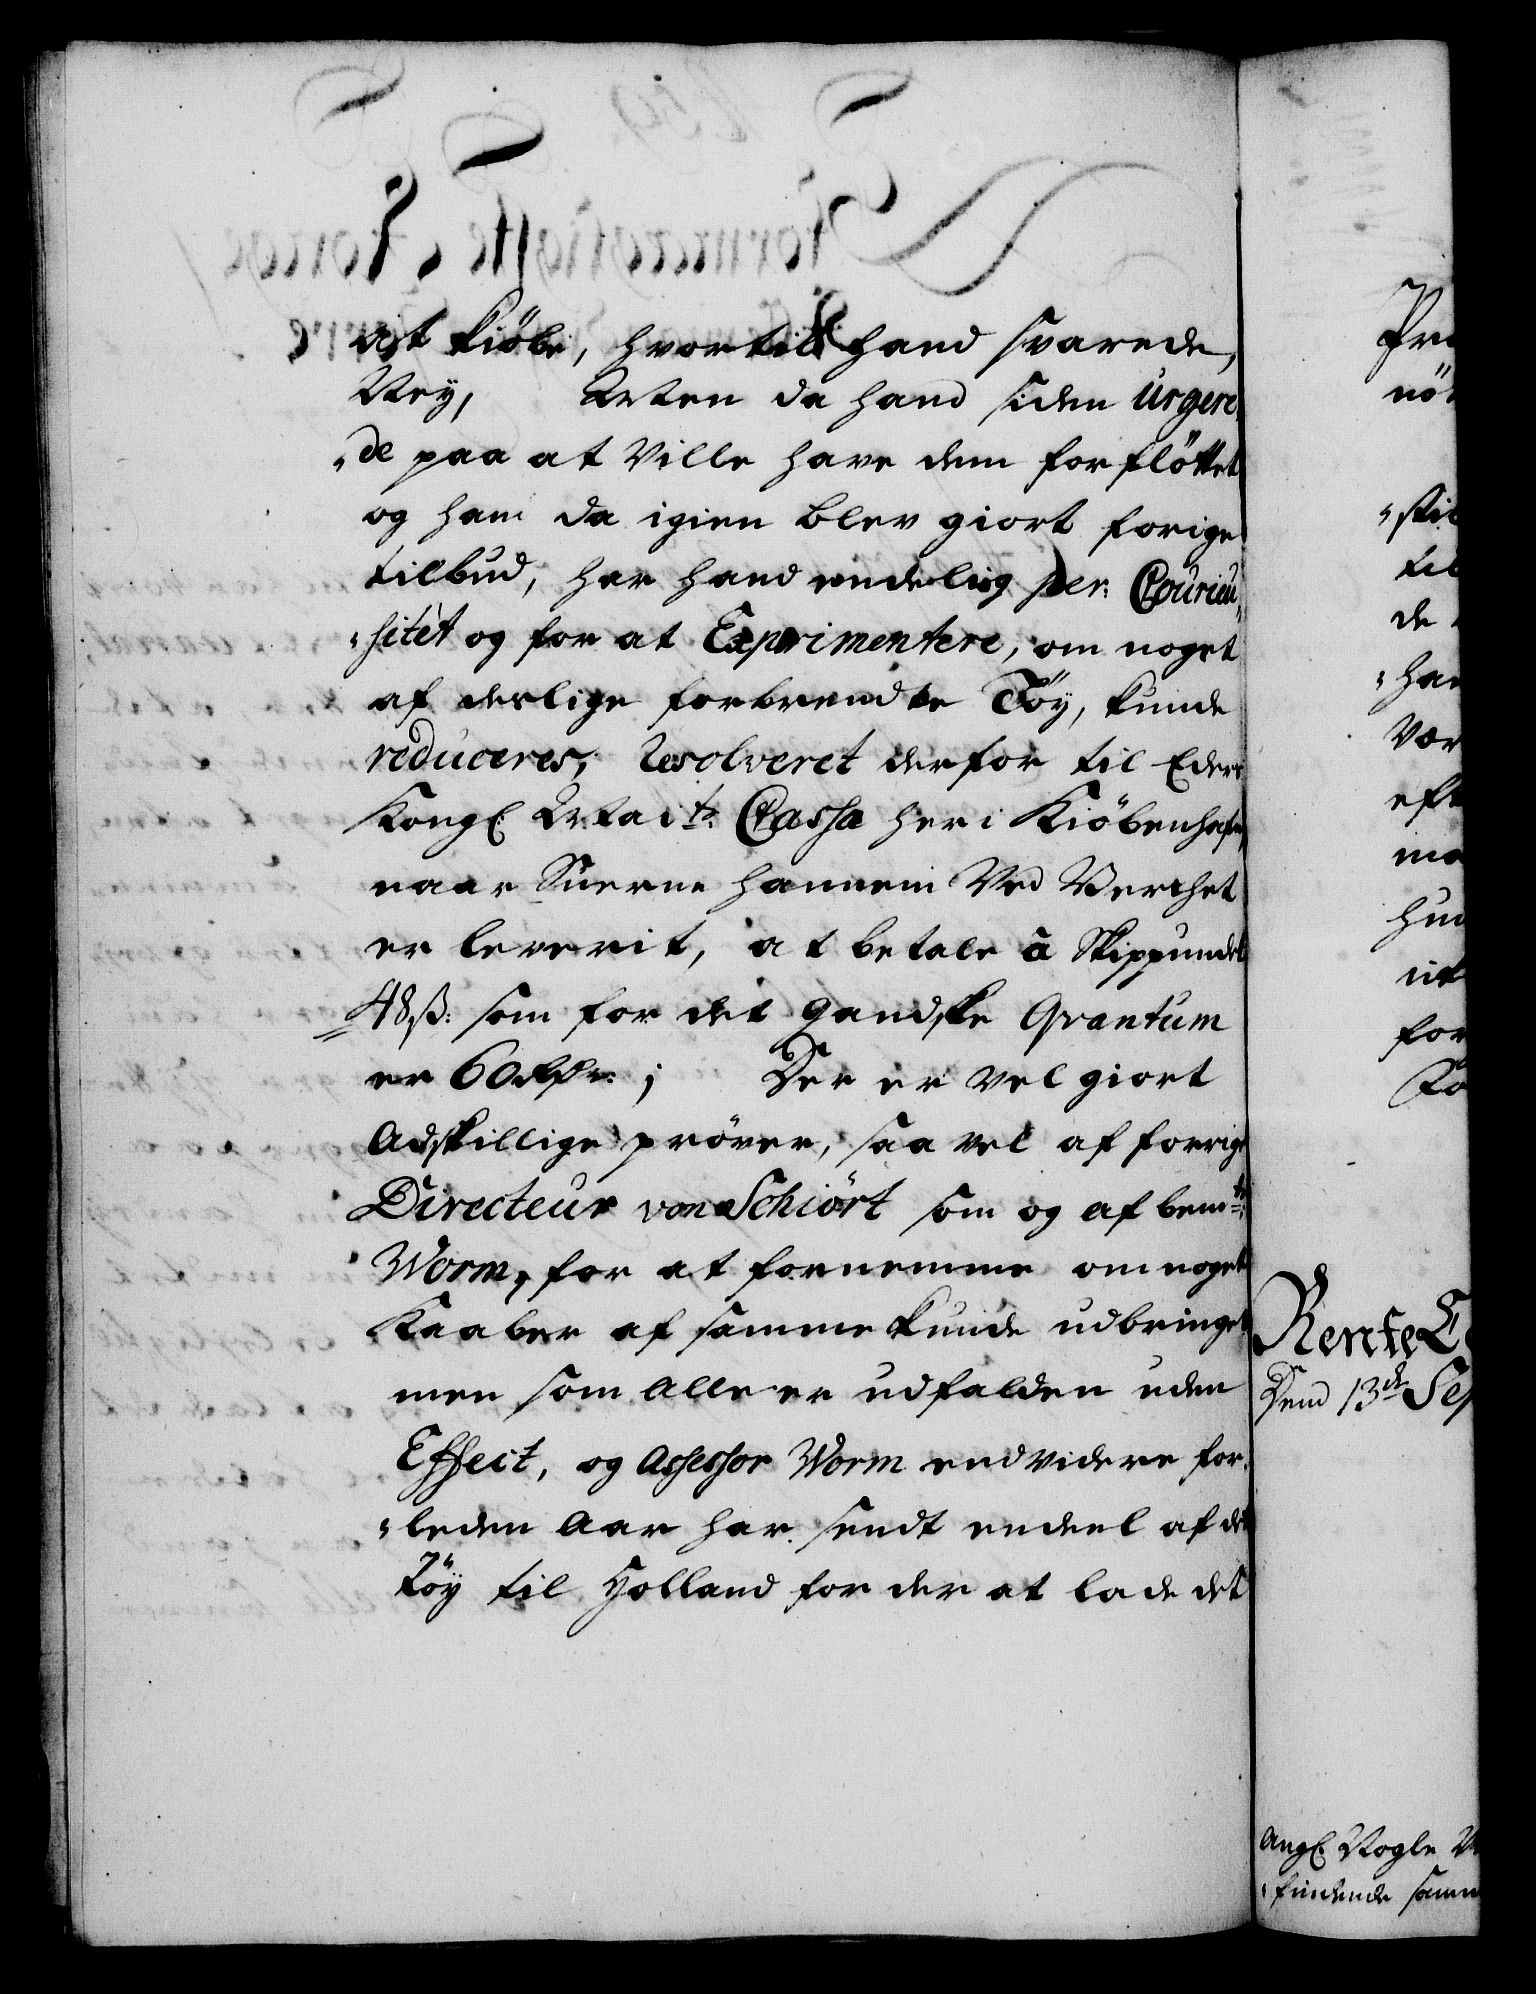 at kiøbe, hvortil hand svarede,
Ney, Men da hand siden urgere,
„de paa at ville have dem forfløttet
og ham da igien blev giort forige
tilbud, har hand endelig per Courieu„
„sitet og for at Experimentere, om noget
af deslige forbrendte Tøy, kunde
reduceres, Resolveret derfor til Eders
Kongl: Maits: Cassa her i Kiøbenhafn,
naar Suerne hannem ved Verchet
er leverit, at betale â Skippundet
48 ß: som for det gandske Qvantum
er 60 Rdr:; Der er vel giort
Adskillige prøver, saa vel af forrige
Directeur von Schiört som og af bemte:
Worm, for at fornemme om noget
Kaaber af samme kunde udbringes
men som Alle er udfalden uden
Effect, og Assessor Worm endvidere for„
„leden Aar har sendt endeel af det
Tøy til Holland for der at lade det
Rente
Dend 13de Sep
Angl: Nogle
„findende